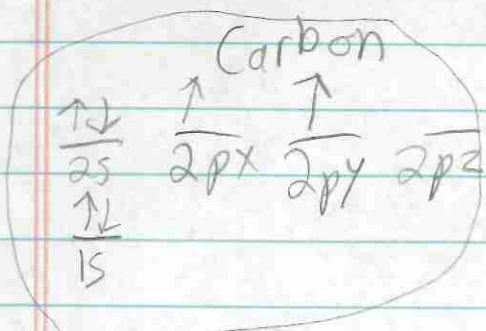 Carbon
↑↓ ↑ ↑
2s 2px 2py 2pz
↑↓
1s